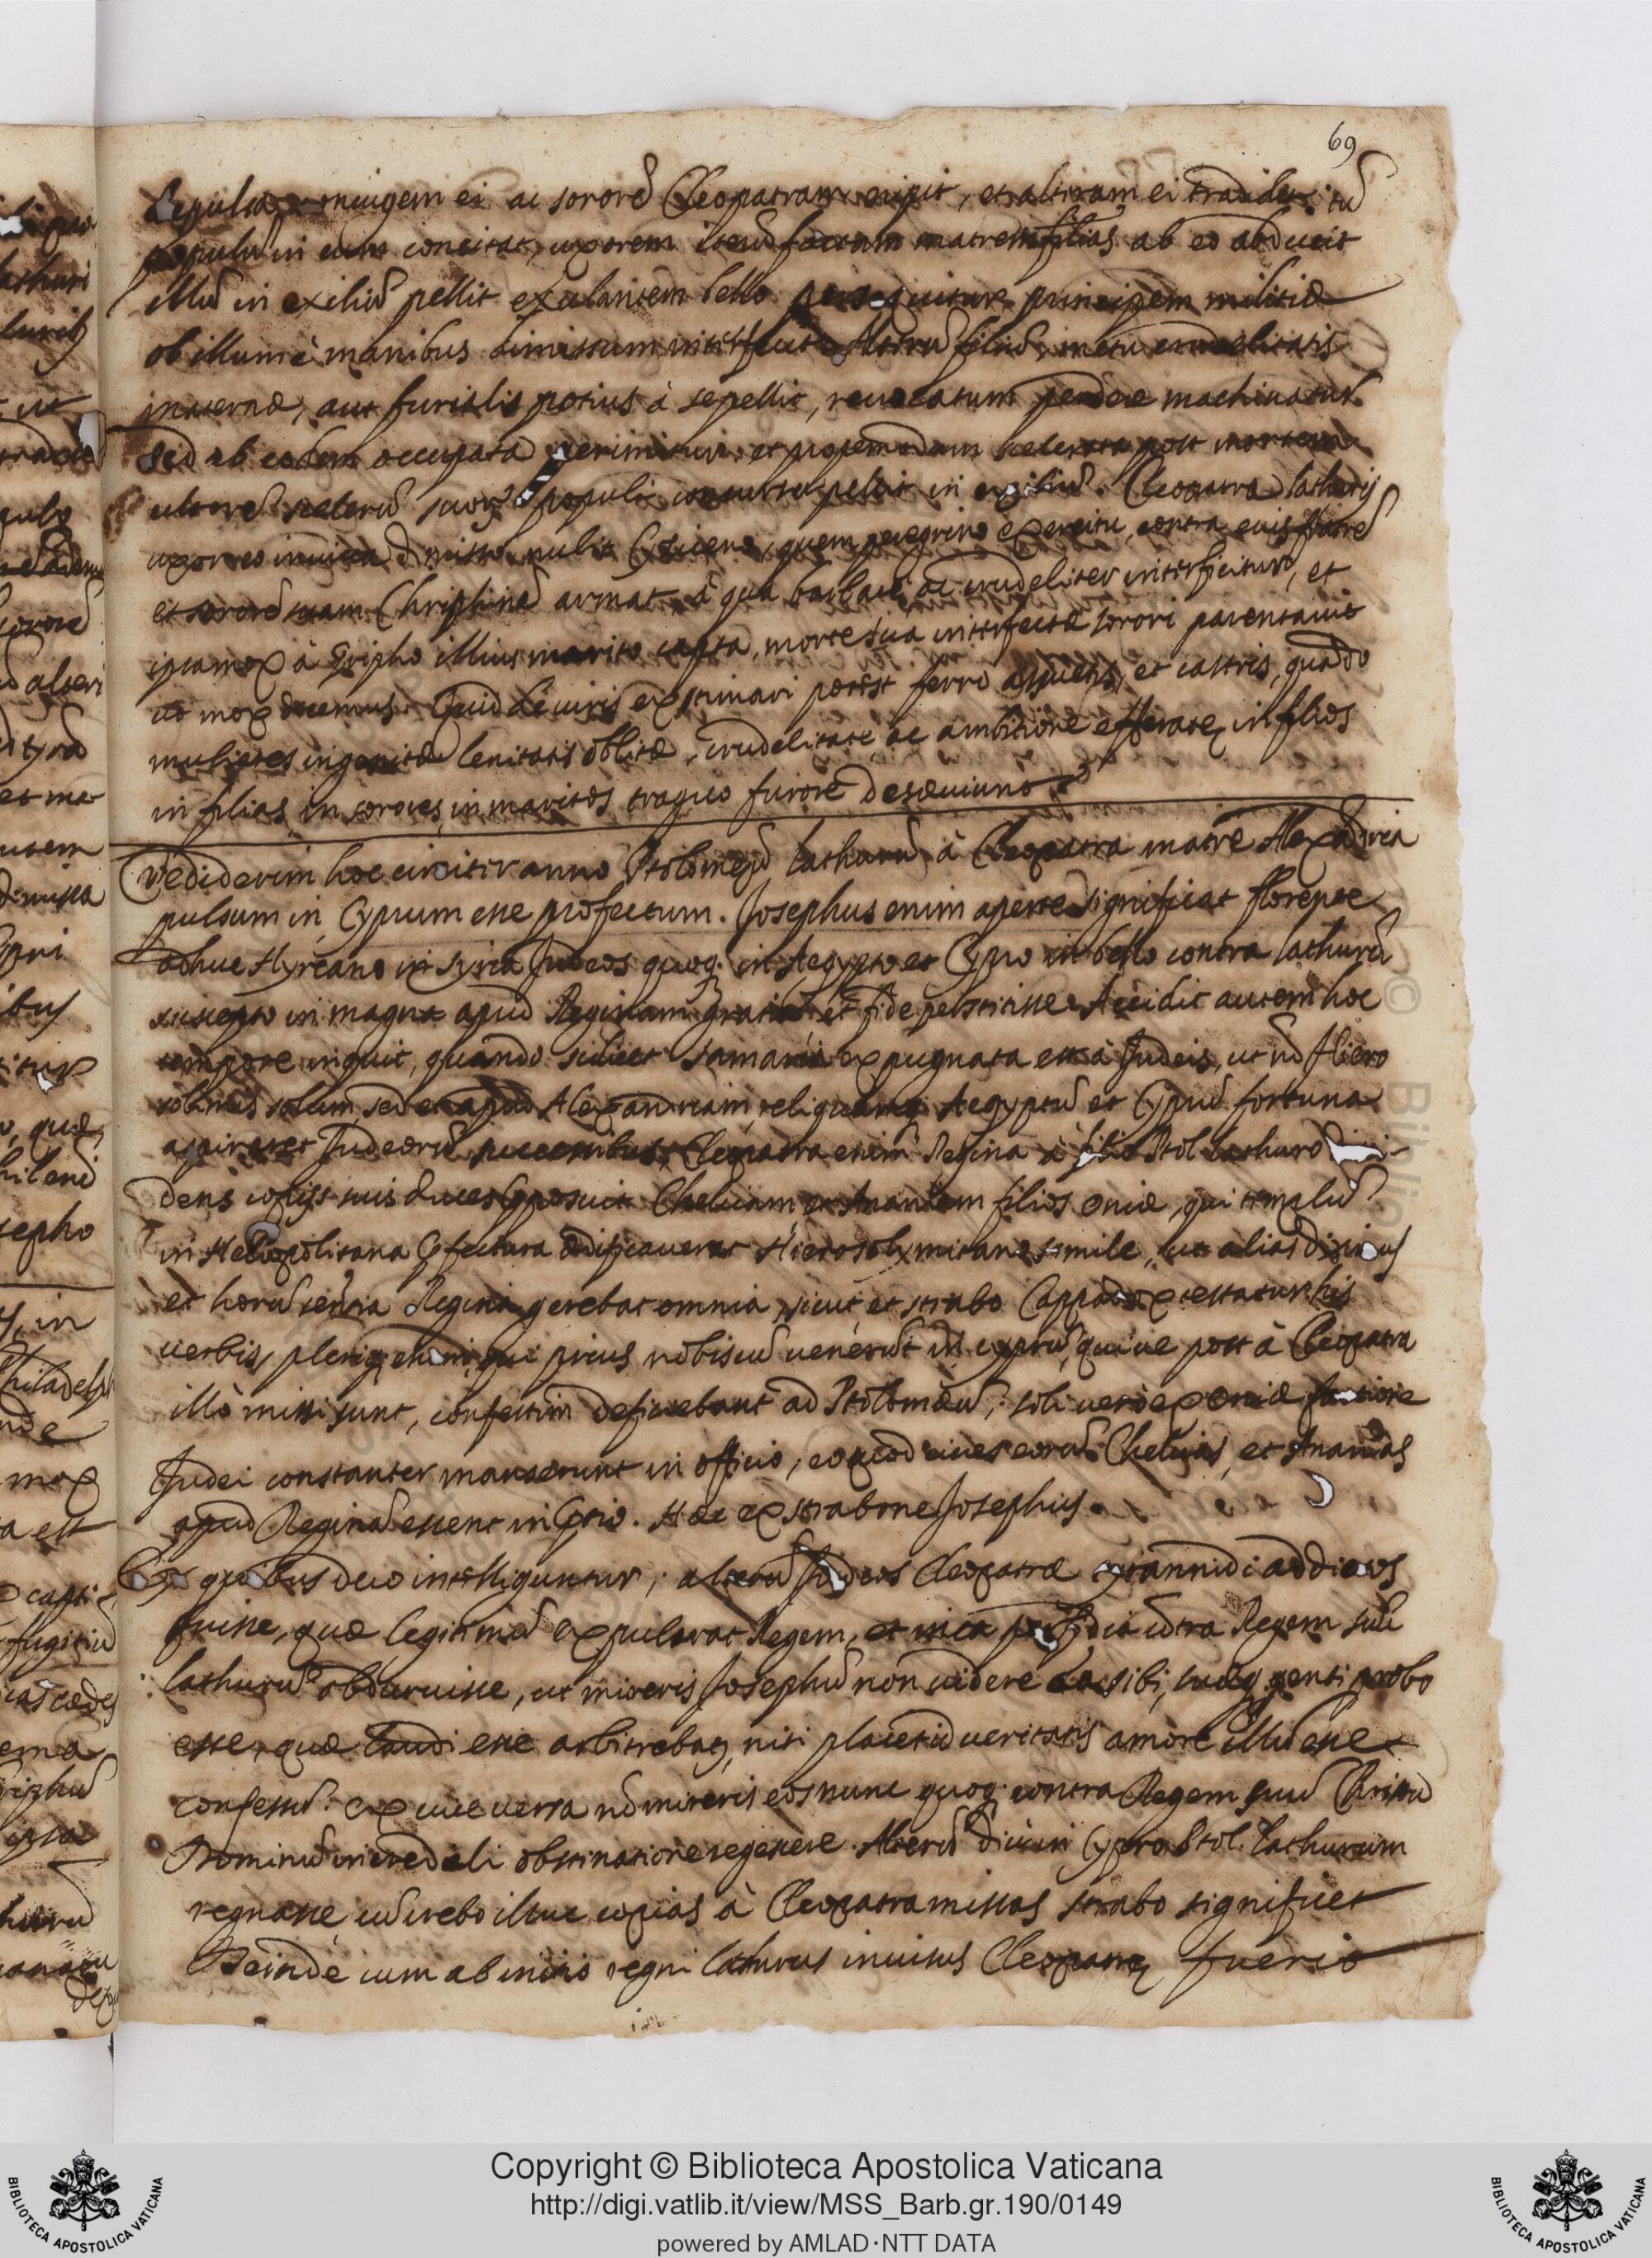 69
Repulsa coniugem ei ac sororē Cleopatram eripit, et alteram ei tradidit: tū
populū in eum concitat, uxorem iterū factam matrem filias ab eo abducit
illū in exiliū pellit exulantem bello persequitur principem militiæ
ob illum è manibus dimissum interfecit. Alterū filiū, metu crudelitatis
maternæ, aut furialis potius à se pellit, reuocatum perdere machinatur
sed ab eodem occupata perimitur et propemodum scelerata post mortem
ultorē scelerū suorū populi concursu pellit in exiliū. Cleopatra Lathurij
uxor eo inuita dimisso nubit Cyziceno, quem peregrino exercitu contra eius fratrē
et sororē suam Chriphinā armat, à qua barbarè ac crudeliter interficitur, et
ipsa mox à Gripho illius marito capta, morte sua interfectæ sorori parentauit
ut mox dicemus. Quid de uiris existimari potest ferro assuetis, et castris, quādo
mulieres ingenitæ lenitatis oblitæ, crudelitate ac ambitione efferatæ in filios
in filias, in sorores, in maritos tragico furore desæuiunt.
Crediderim hoc circiter anno Ptolomeū Lathurū à Cleopatra matre Alexādria
pulsum in Cyprum esse profectum. Josephus enim aperte significat florente
adhuc Hyrcano in Syria Judeos quoq. in Aegypto et Cypro in bello contra Lathurū
suscepto in magna apud Reginam gratia et fide perstitisse. Accidit autem hoc
tempore inquit, quando scilicet Samaria expugnata est à Judeis, ut nō Hiero
solimis solum sed et apud Alexandriam reliquamq. Aegyptū et Cyprū fortuna
aspiraret Judeorū successibus, Cleopatra enim Regina à filio Ptol. Lathuro
dens copijs suis duces cōposuit Chelciam et Ananiam filios Oniæ, qui templū
in Heliopolitana Præfectura ædificauerat Hierosolymitano simile, ut alias diximus
et horū sentētia Regina gerebat omnia, sicut et Strabo Cappadox testatur his
uerbis, pleriq. enim, qui prius nobiscū uenerūt in cyprū, quiue post à Cleopatra
illò missi sunt, confestim deficiebant ad Ptolomæū, soli uero ex Oniæ factione
Judei constanter manserunt in officio, eo quod ciues eorū Chelcias, et Ananias
apud Reginā essent in prætio. Hæc ex Strabone Josephus.
Ex quibus duo intelliguntur; alterū Judeos Cleopatræ tyrannidi addictos
fuisse, quæ legitimū expulerat Regem, et mira perfidia cōtra Regem suū
Lathurū obduruisse, ut mireris Josephū non uidere hæc sibi, suæq. genti probro
esse, quæ laudi esse arbitrabatur, nisi placet id ueritatis amore illū esse
confessū. ex uice uersa nō mireris eos nunc quoq. contra Regem suū Christū
Dominū incredibili obstinatione se gerere. Alterū diu in Cypro Ptol. Lathurum
regnasse cū crebo illuc copias à Cleopatra missas Strabo significet
Deinde cum ab initio regni Lathurus inuisus Cleopatræ fuerit
Copyright © Biblioteca Apostolica Vaticana
http://digi.vatlib.it/view/MSS_Barb.gr.190/0149
powered by AMLAD·NTT DATA
BIBLIOTECA APOSTOLICA VATICANA
BIBLIOTECA APOSTOLICA VATICANA